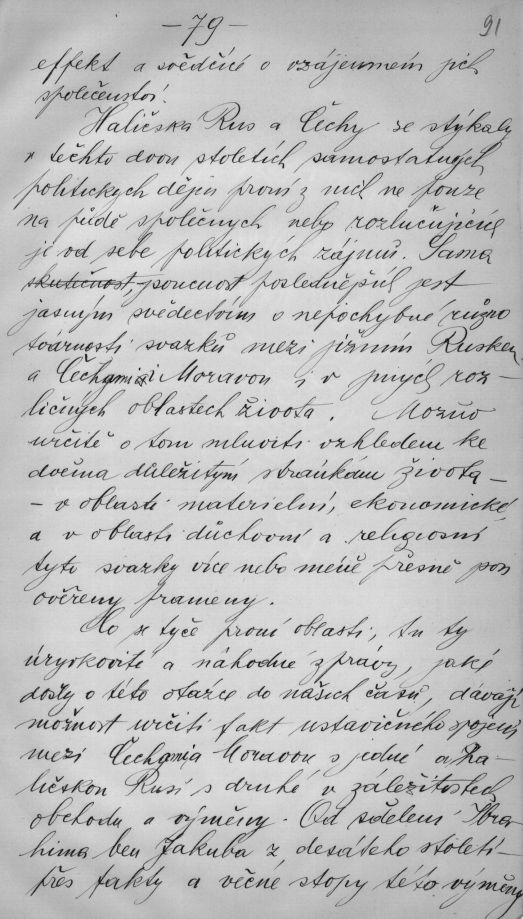 — 79 —
91
effekt a svědčící o vzájemném jich
společenství.
Haličská Rus a Čechy se stýkaly
v těchto dvou stoletích samostatných
politických dějin první z nich ne pouze
na půdě společných nebo rozlučujících
je od sebe politických zájmů. Sama
skutečnost jsoucnost poslednějších jest
jasným svědectvím o nepochybné různo
tvárnosti svazků mezi jižním Ruskem
a Čechami a Moravou i v jiných roz-
ličných oblastech života. Možno
určitě o tom mluviti vzhledem ke
dvěma důležitým stránkám života —
— v oblasti materielní, ekonomické
a v oblasti duchovní a religiosní
tyto svazky více nebo méně přesně
ověřeny prameny.
Co se týče první oblasti, tu ty
úryvkovité a náhodné zprávy, jaké
došly o této otázce do našich časů, dávají
možnost určiti fakt ustavičného spojení
mezi Čechami a Moravou s jedné a Ha-
ličskou Rusí s druhé v záležitostech
obchodu a výměny. Od sdělení Ibra
hima ben Jakuba z desátého století —
přes fakty a věčné stopy této výměny